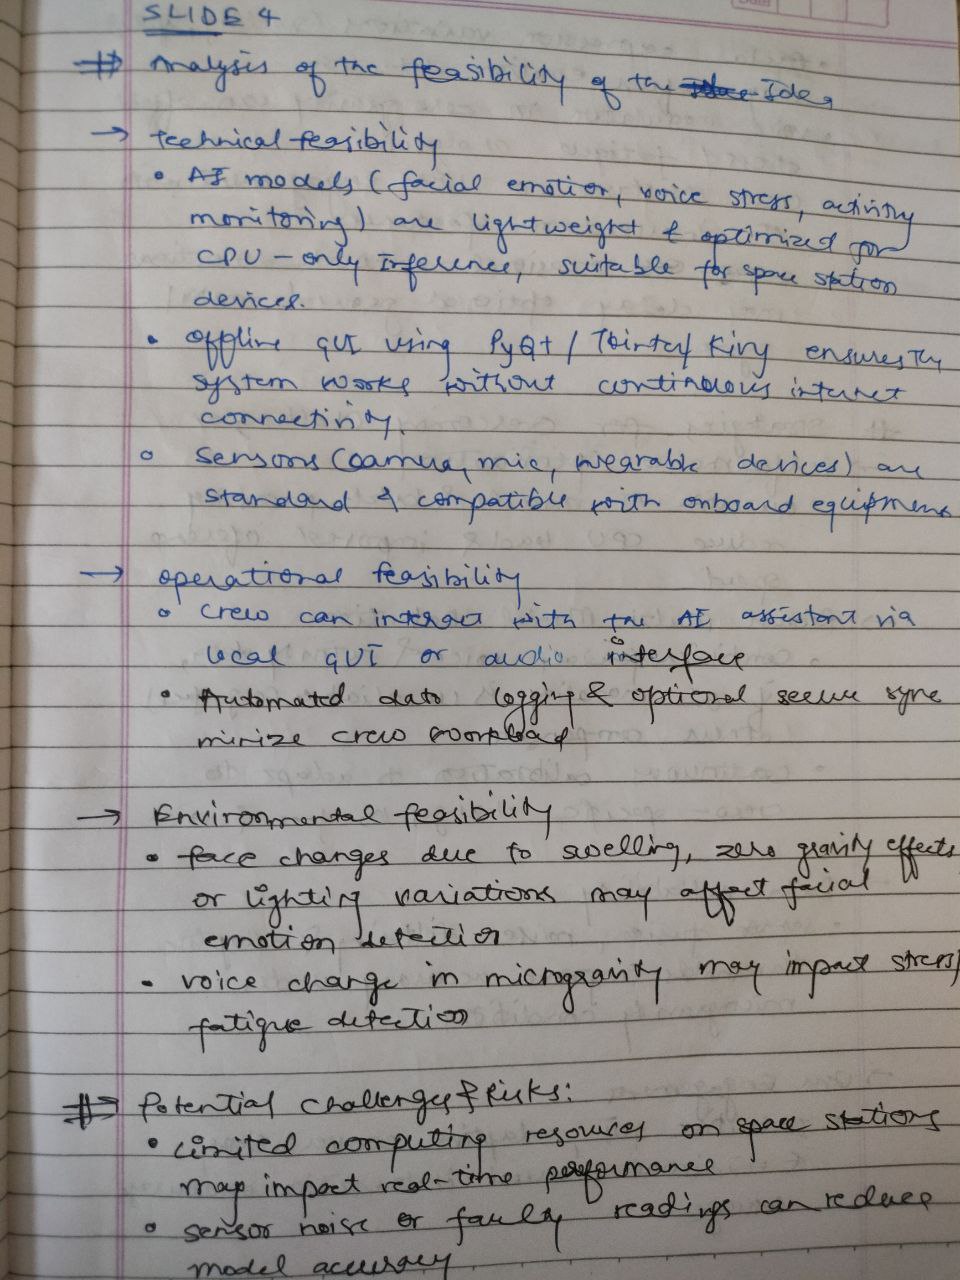 SLIDE 4
⇒ Analysis of the feasibility of the Idea
→ technical feasibility
• AI models (facial emotion, voice stress, activity
monitoring) are lightweight & optimized for
CPU-only Inference, suitable for space station
devices.
• offline GUI using PyQt / Tkinter/ Kivy ensures the
system works without continuous internet
connectivity.
• Sensors (camera, mic, wearable devices) are
standard & compatible with onboard equipment
→ operational feasibility
• crew can interact with the AI assistant via
local GUI or audio interface
• Automated data logging & optional secure sync
minize crew workload
→ Environmental feasibility
• face changes due to swelling, zero gravity effects
or lighting variations may affect facial
emotion detection
• voice change in microgravity may impact stress/
fatigue detection
⇒ Potential challenges & Risks:
• Limited computing resources on space stations
may impact real-time performance
• sensor noise or faulty readings can reduce
model accuracy